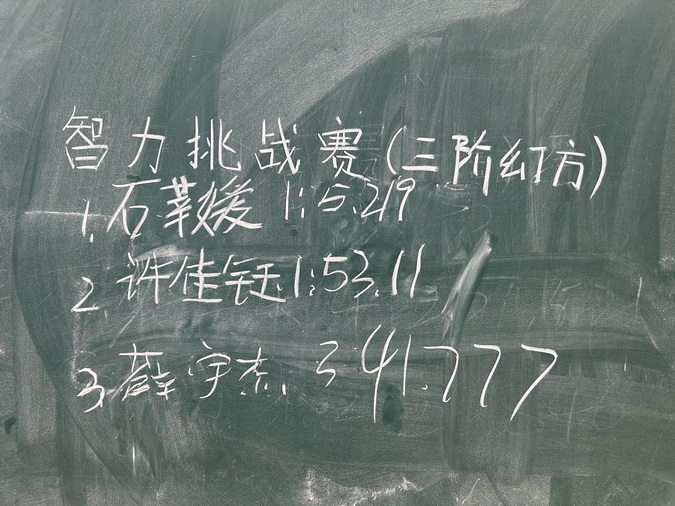 智力挑战赛(三阶幻方)
1.石莘媛 1:5.219
2.许佳钰1:53.11
3.薛宇杰. 3 41.777